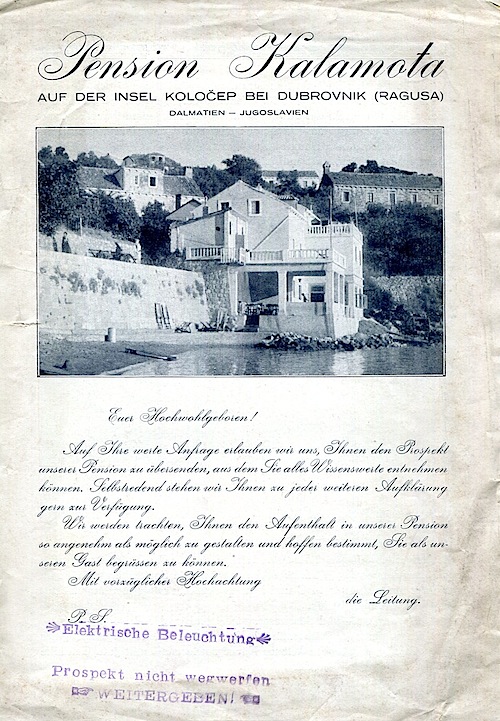 Pension Kalamota
AUF DER INSEL KOLOČEP BEI DUBROVNIK (RAGUSA)
DALMATIEN — JUGOSLAVIEN
Euer Hochwohlgeboren!
Auf Ihre werte Anfrage erlauben wir uns, Ihnen den Prospekt
unserer Pension zu übersenden, aus dem Sie alles Wissenswerte entnehmen
können. Selbstredend stehen wir Ihnen zu jeder weiteren Aufklärung
gern zur Verfügung.
Wir werden trachten, Ihnen den Aufenthalt in unserer Pension
so angenehm als möglich zu gestalten und hoffen bestimmt, Sie als un-
seren Gast begrüssen zu können.
Mit vorzüglicher Hochachtung
die Leitung.
P. S.
Elektrische Beleuchtung
Prospekt nicht wegwerfen
WEITERGEBEN!